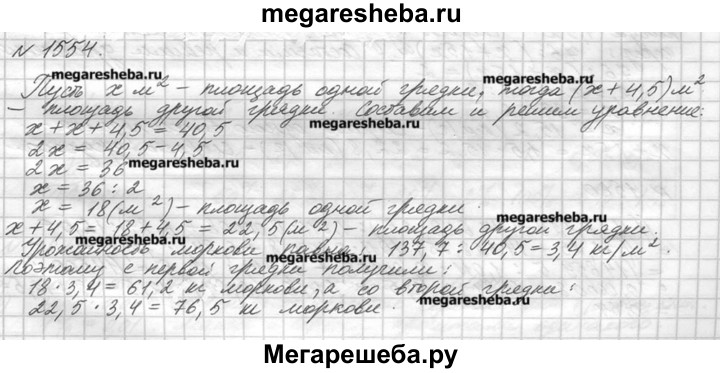 megaresheba.ru
№ 1554.
megaresheba.ru megaresheba.ru
Пусть x м² – площадь одной грядки, тогда (x + 4,5) м²
– площадь другой грядки. Составим и решим уравнение:
megaresheba.ru
x + x + 4,5 = 40,5
2x = 40,5 – 4,5
2x = 36
megaresheba.ru
x = 36 : 2
x = 18 (м²) – площадь одной грядки.
megaresheba.ru
x + 4,5 = 18 + 4,5 = 22,5 (м²) – площадь другой грядки.
megaresheba.ru
Урожайность моркови равна: 137,7 : 40,5 = 3,4 кг/м².
Поэтому с первой грядки получили:
18 · 3,4 = 61,2 кг моркови, а со второй грядки:
megaresheba.ru
22,5 · 3,4 = 76,5 кг моркови.
Мегарешеба.ру